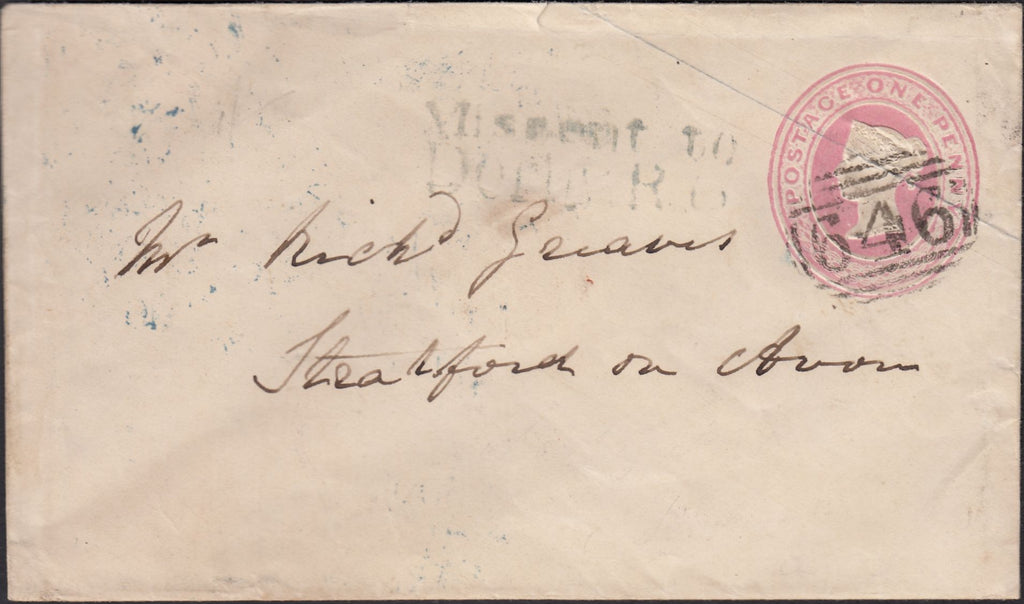 Missent to
Derby R.O
POSTAGE ONE PENNY
646
Mr Richd Greaves
Stratford on Avon